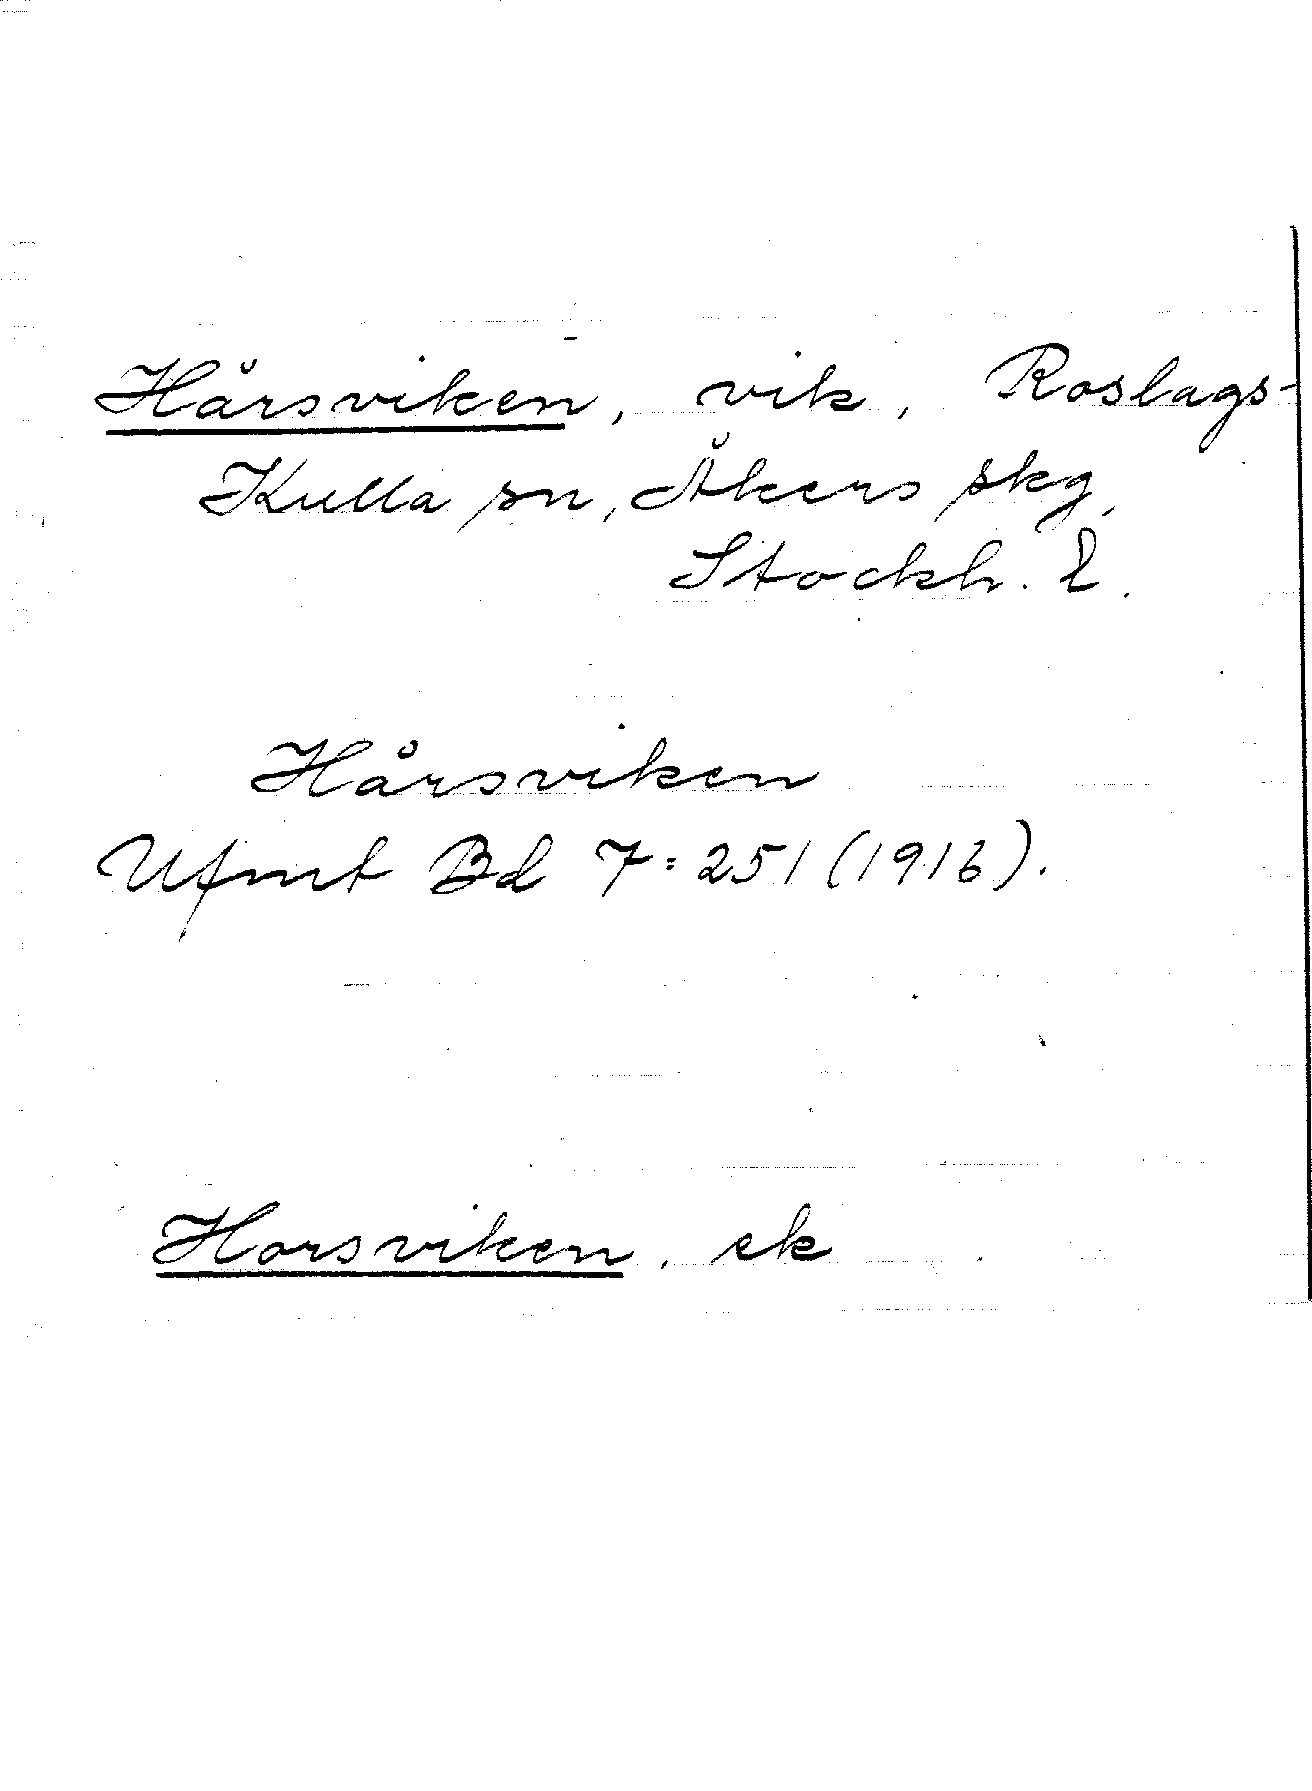 Hårsviken, vik, Roslags-
Kulla sn, Åkers skg,
Stockh. l.
Hårsviken
Ufmt Bd 7:251 (1916).
Horsviken, ek